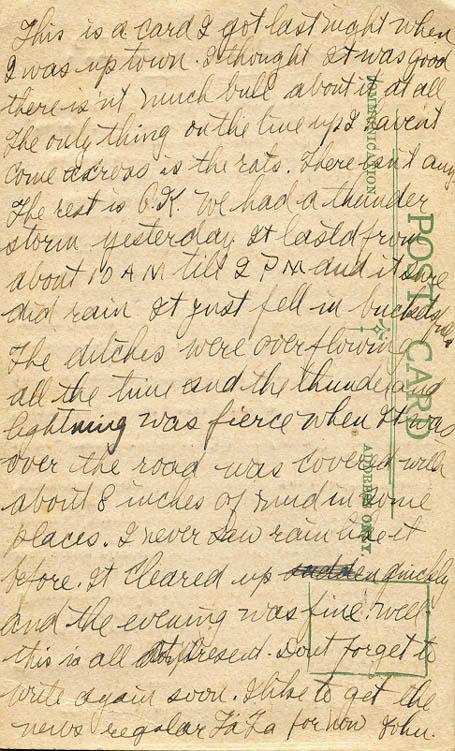 This is a card I got last night when
I was up town. I thought It was good
there is'nt much bull about it at all
The only thing on the line up I haven't
come across is the rats. There isn't any
The rest is O.K. We had a thunder
storm yesterday It lasted from
about 10 AM till 2 PM and it sure
did rain It just fell in bucketsful.
The ditches were overflowing
all the time and the thunder and
lightning was fierce when It was
over the road was covered with
about 8 inches of mud in some
places. I never saw rain like it
before. It cleared up sudden quickly
and the evening was fine. well
this is all at present. Dont forget to
write again soon. I like to get the
news regular Ta Ta for now John.
COMMUNICATION
POST CARD
ADDRESS ONLY.